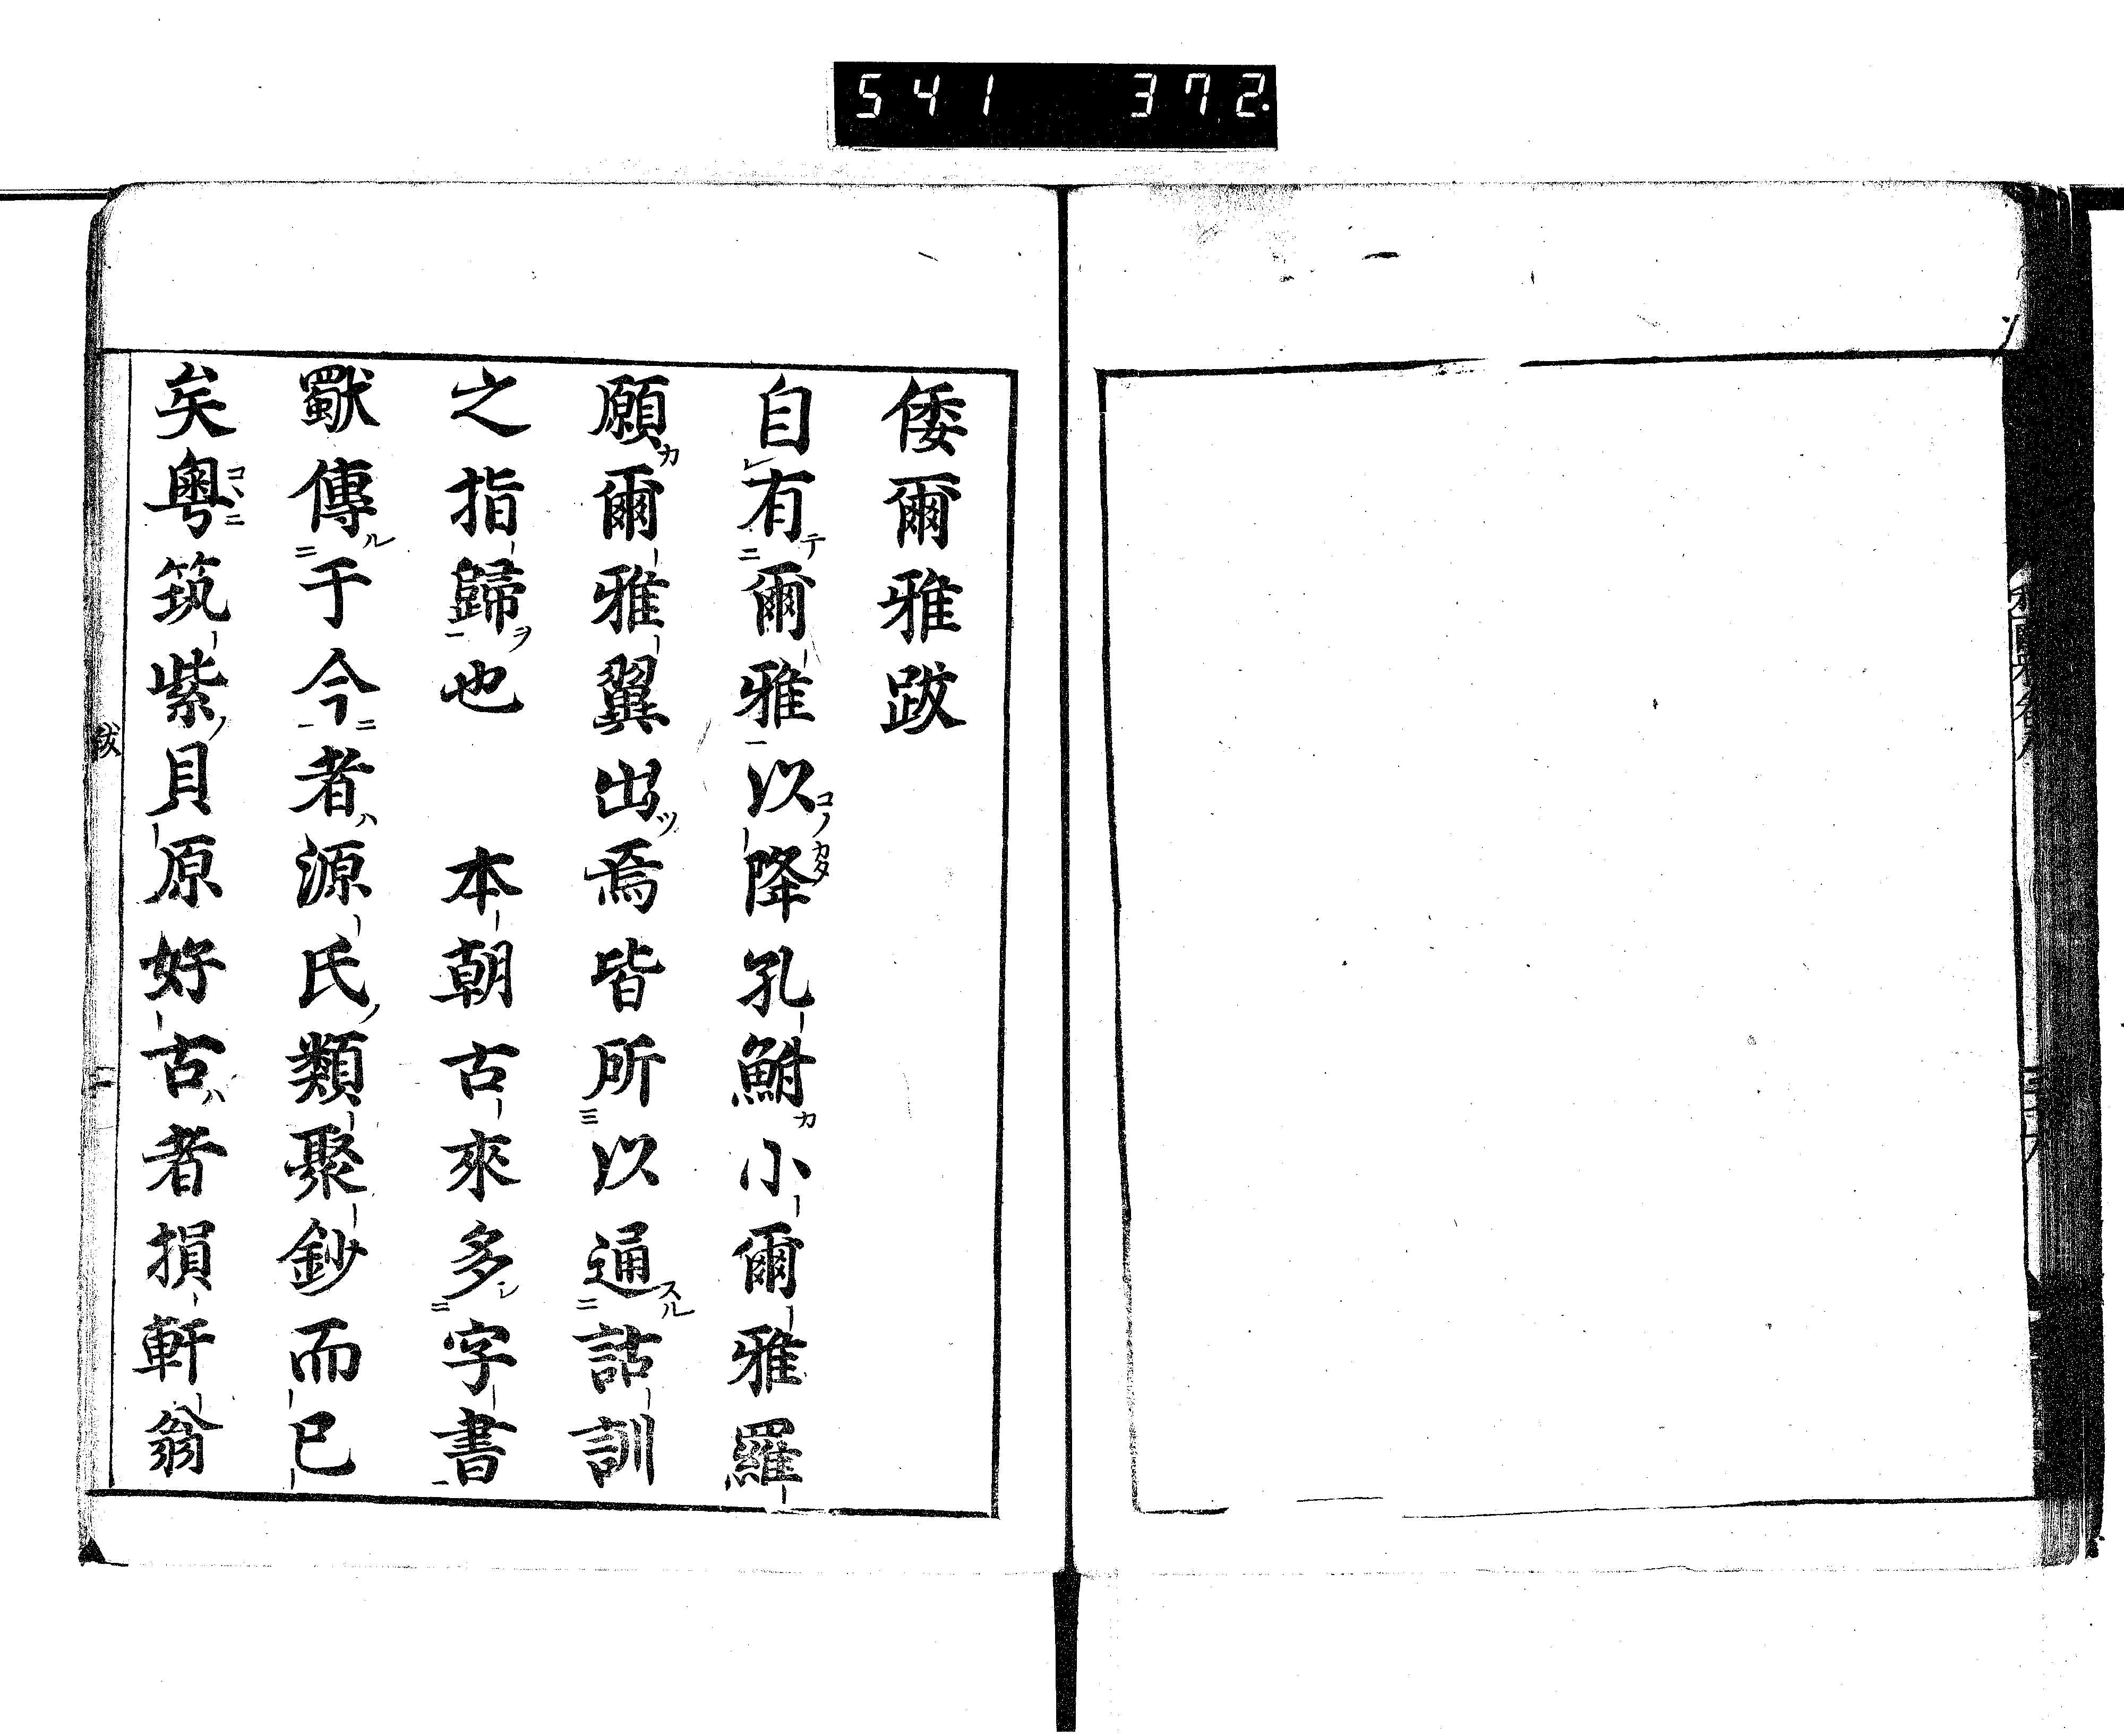 541 372
倭爾雅跋
自有爾雅以降孔鮒小爾雅羅
願爾雅翼出焉皆所以通詁訓
之指歸也　本朝古來多字書
獨傳于今者源氏類聚鈔而已
矣粤筑紫貝原好古者損軒翁
跋